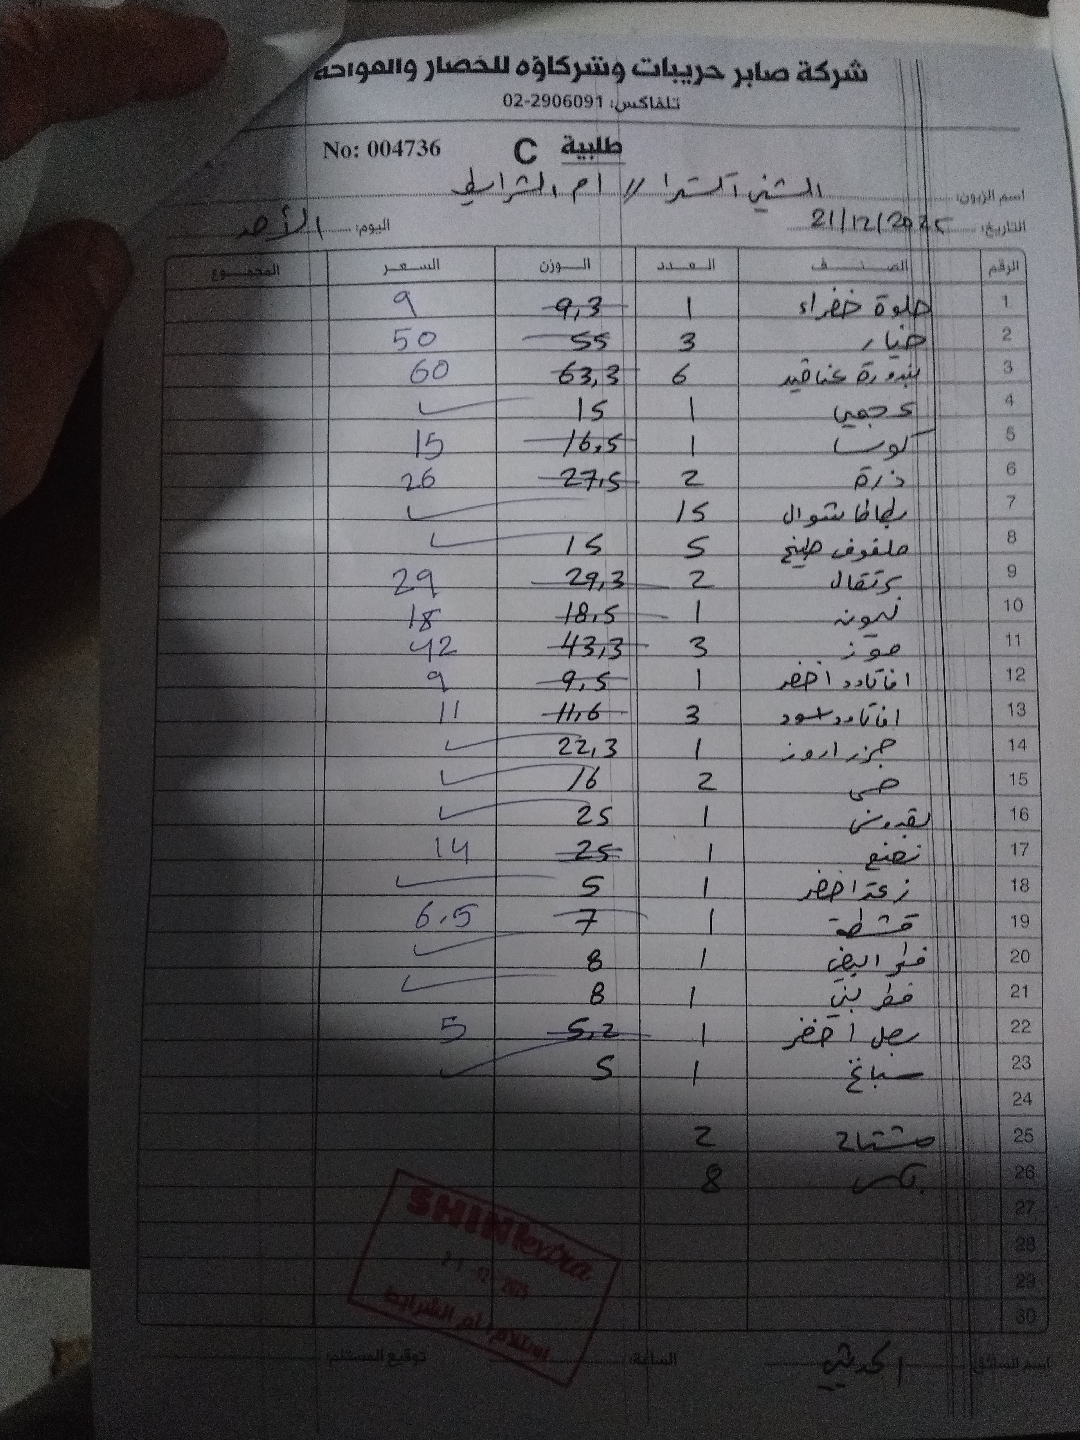 شركة صابر حريبات وشركاؤه للخضار والفواكه
تلفاكس: 02-2906091
No: 004736 C طلبية
اسم الزبون: الشني اكسترا // ام الشرايط
التاريخ: 21/12/2025 اليوم: الأحد
الرقم الصنف العدد الوزن السعر المجموع
1 حلوة خضراء 1 9,3 9
2 خيار 3 55 50
3 بندورة عناقيد 6 63,3 60
4 عجمي 1 15
5 كوسا 1 16,5 15
6 ذرة 2 27,5 26
7 بطاطا شوال 15
8 ملفوف طبيخ 5 15
9 برتقال 2 29,3 29
10 ليمون 1 18,5 18
11 موز 3 43,3 42
12 افاكادو اخضر 1 9,5 9
13 افاكادو اسود 3 11,6 11
14 جزر اروز 1 22,3
15 خس 2 16
16 بقدونس 1 25
17 نعنع 1 25 14
18 زعتر اخضر 1 5
19 قشطة 1 7 6,5
20 فطر ابيض 1 8
21 فطر بني 1 8
22 بصل اخضر 1 5,2 5
23 سبانخ 1 5
24
25 مشتاح 2
26 بكس 8
27
28
29
30
SHINI extra
21-12-2025
استلام/ ام الشرايط
اسم السائق: الساعة: توقيع المستلم: